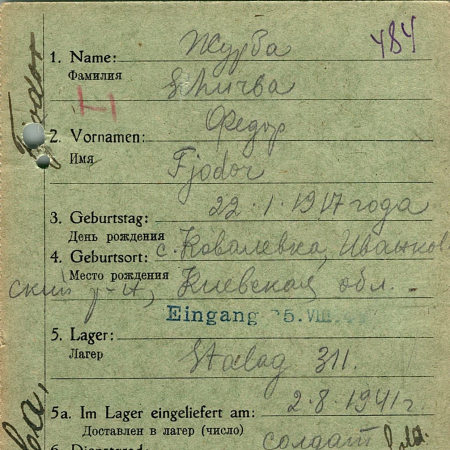 484
1. Name: Журба
Фамилия Schurba
2. Vornamen: Федор
Имя Fjodor
Fjodor
3. Geburtstag: 22.1.1917 года
День рождения
4. Geburtsort: с. Ковалевка, Иванков-
Место рождения
ский р-н, Киевская обл. -
Eingang 25. VIII.
5. Lager: Stalag 311.
Лагер
5a. Im Lager eingeliefert am: 2.8.1941 г.
Доставлен в лагер (число)
солдат Sold.